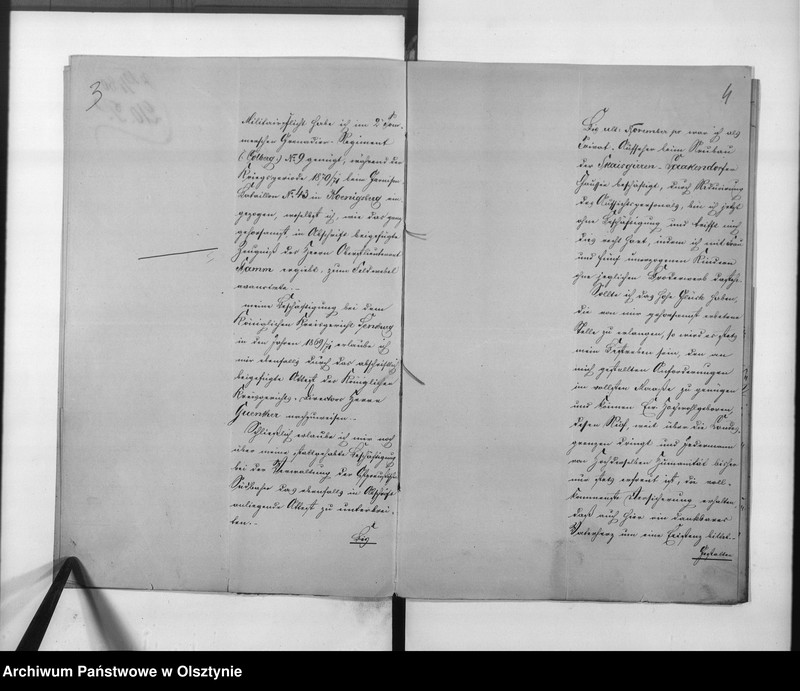 3
Militairpflicht habe ich im 2. Pom-
merschen Grenadier-Regiment
(Colberg) No 9 genügt, während der
Kriegsperiode 1870/71 beim Garnison-
Bataillon No 43 in Koenigsberg ein-
gezogen, woselbst ich, wie das ganz
gehorsamst in Abschrift beigefügte
Zeugniß des Herrn Oberstlieutenant
ergiebt, zum Feldwebel
avancirte.-
Meine Beschäftigung bei dem
Königlichen Kreisgericht
in den Jahren 1869/71 erlaube ich
mir ebenfalls durch das abschriftlich
beigefügte Attest des Königlichen
Kreisgerichts-Director Herrn
Guenther nachzuweisen.-
Schließlich erlaube ich mir noch
über meine stattgehabte Beschäftigung
bei der Verwaltung der Ostpreußischen
Südbahn das ebenfalls in Abschrift
anliegende Attest zu unterbrei-
ten.-
Bis
4
Bis ult. November pr war ich als
Privat-Aufseher beim Neubau
der
Chaussee beschäftigt, durch Reducirung
des Aufsichtspersonals, bin ich jetzt
ohne Beschäftigung und trifft mich
das recht hart, indem ich mit Frau
und fünf unerzogenen Kindern
ohne jeglichen Broderwerb dastehe.
Sollte ich das hohe Glück haben,
die von mir gehorsamst erbetene
Stelle zu erlangen, so wird es stets
mein Bestreben sein, den an
mich gestellten Anforderungen
im vollsten Maaße zu genügen
und können Ew. Hochwohlgeboren,
dessen Ruf, weit über die Landes-
grenzen dringt und Jedermann
von Hochdesselben Humanität bisher
nur stets erfreut ist, die voll-
kommenste Versicherung erhalten,
daß auch hier ein dankbares
Vaterherz um eine Existenz bittet.-
Gestatten
Archiwum Państwowe w Olsztynie